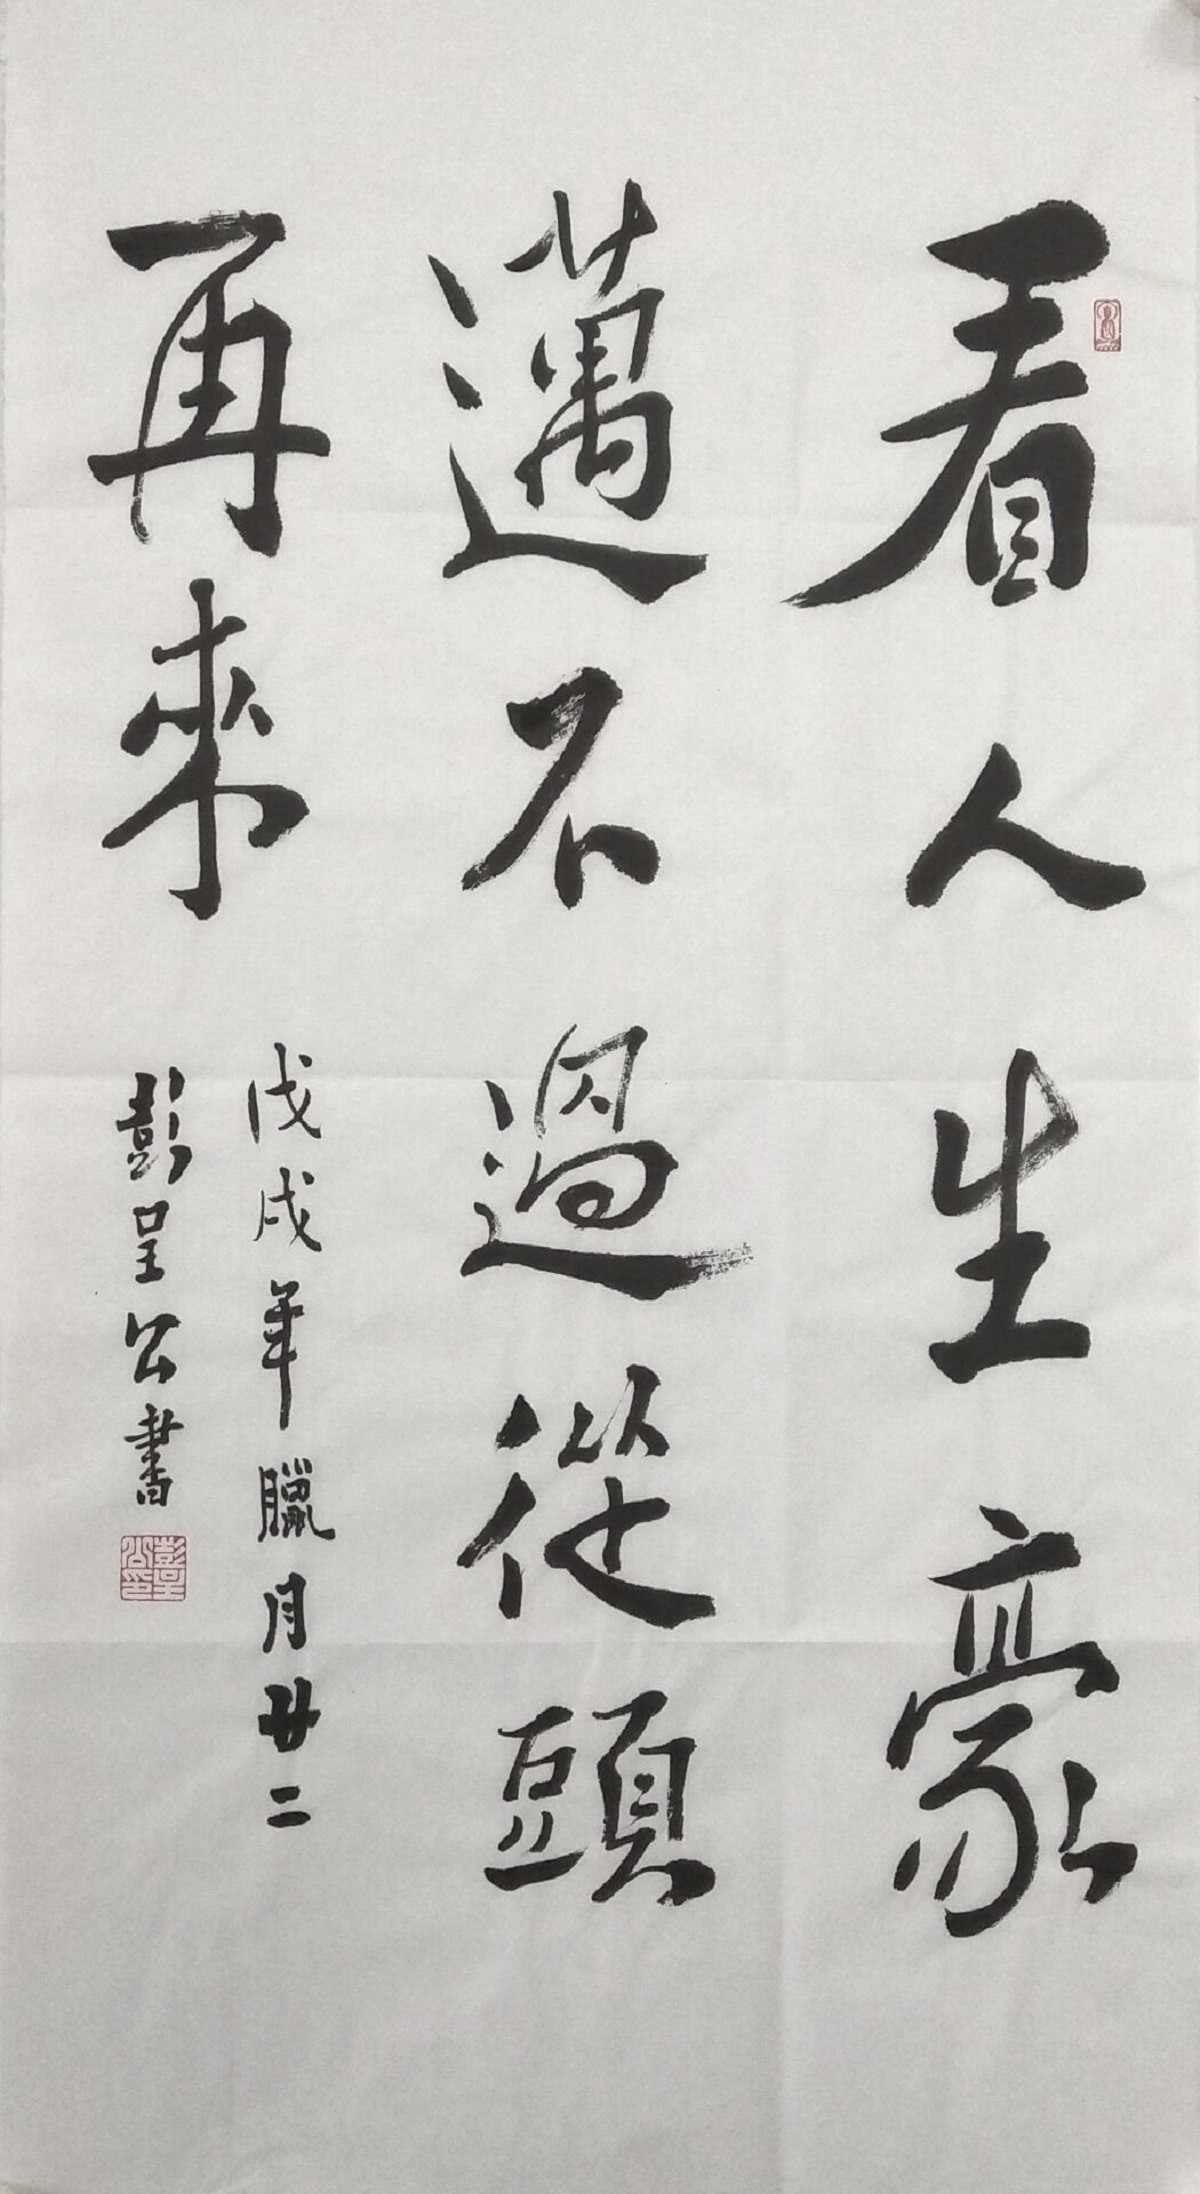 看人生豪
邁不過從頭
再來
戊戌年臘月廿二
彭呈公書
彭呈公印